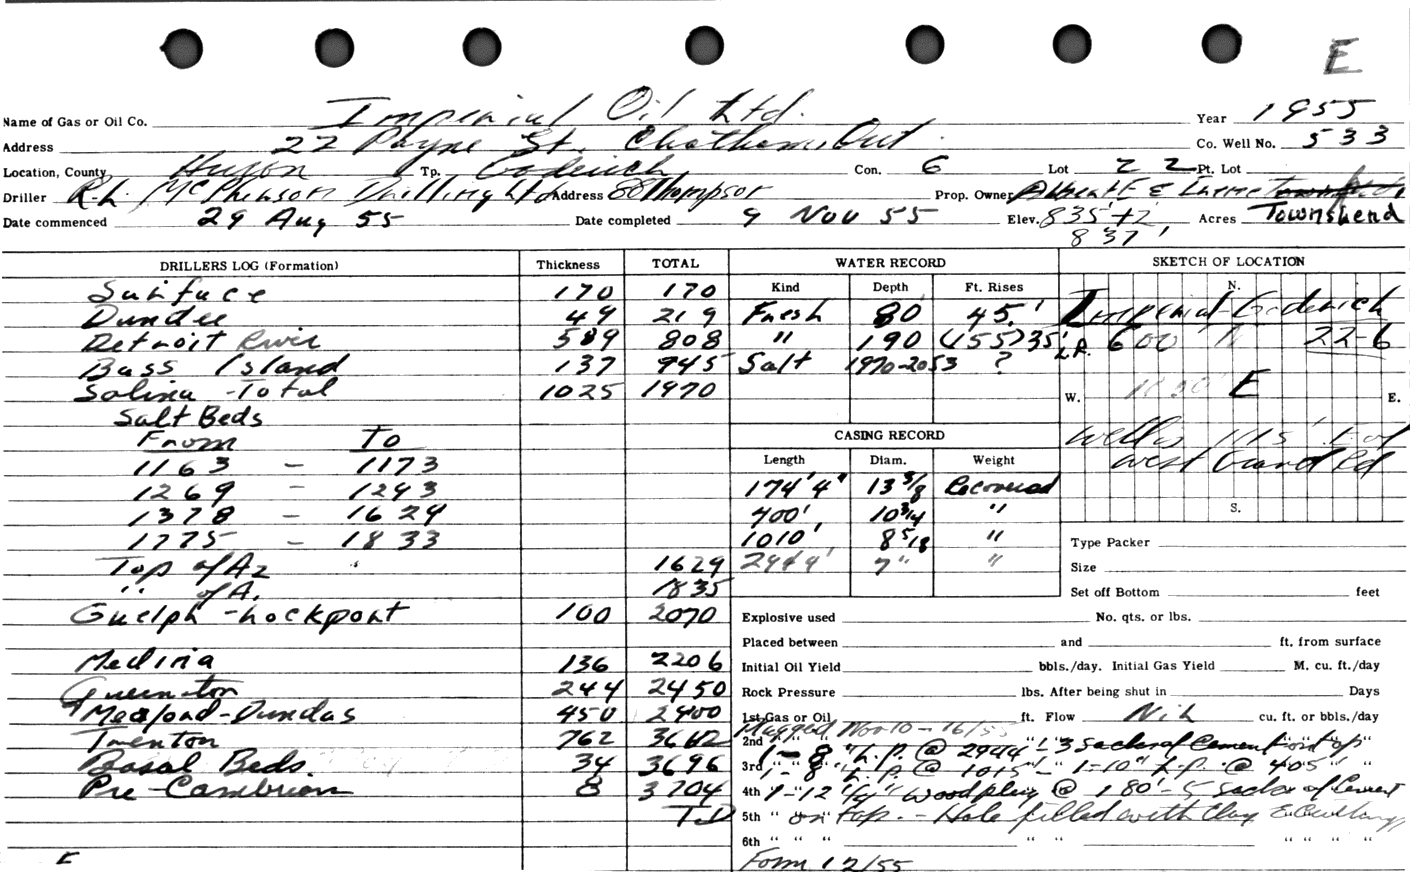 E
Name of Gas or Oil Co. Imperial Oil Ltd. Year 1955
Address 22 Payne St. Chatham, Ont. Co. Well No. 533
Location, County Huron Tp. Goderich Con. 6 Lot 22 Pt. Lot
Driller R.L. McPherson Drilling Ltd Address 88 Thompson Prop. Owner Albert E &
Date commenced 29 Aug 55 Date completed 9 Nov 55 Elev. 835'+2' Acres Townshend
837'
DRILLERS LOG (Formation) Thickness TOTAL WATER RECORD SKETCH OF LOCATION
Kind Depth Ft. Rises N.
Surface 170 170
Dundee 49 219 Fresh 80 45' Imperial-Goderich
Detroit River 589 808 " 190 (155) 35' 600' N 22-6
Bass Island 137 945 Salt 1970-2053 ?
Salina-Total 1025 1970 W. E E.
Salt Beds
From To CASING RECORD well is 1115' E of
Length Diam. Weight west Road
1163 - 1173
1269 - 1293 174'4" 13 3/8 Recovered
1378 - 1629 700' 10 3/4 " S.
1775 - 1833 1010' 8 5/8 " Type Packer
Top of A2 1629 2944' 7" " Size
" of A. 1835 Set off Bottom feet
Guelph-Lockport 100 2070 Explosive used No. qts. or lbs.
Placed between and ft. from surface
Medina 136 2206 Initial Oil Yield bbls./day. Initial Gas Yield M. cu. ft./day
Queenston 244 2450 Rock Pressure lbs. After being shut in Days
Meaford-Dundas 450 2900 1st Gas or Oil ft. Flow Nil cu. ft. or bbls./day
Plugged Nov 10-16/55
Trenton 762 3662 2nd " " " 1-8" L.p. @ 2944'-3 sacks of Cement on top
Basal Beds. 34 3696 3rd " " " 1-8" L.p. @ 1015'- 1-10" L.p. @ 405'
Pre-Cambrian 8 3704 4th 1-12 1/4" Wood plug @ 180'-5 sacks of Cement
T.D 5th " " " on top. - Hole filled with Clay &
6th " " " " " " " " "
E Form 12/55